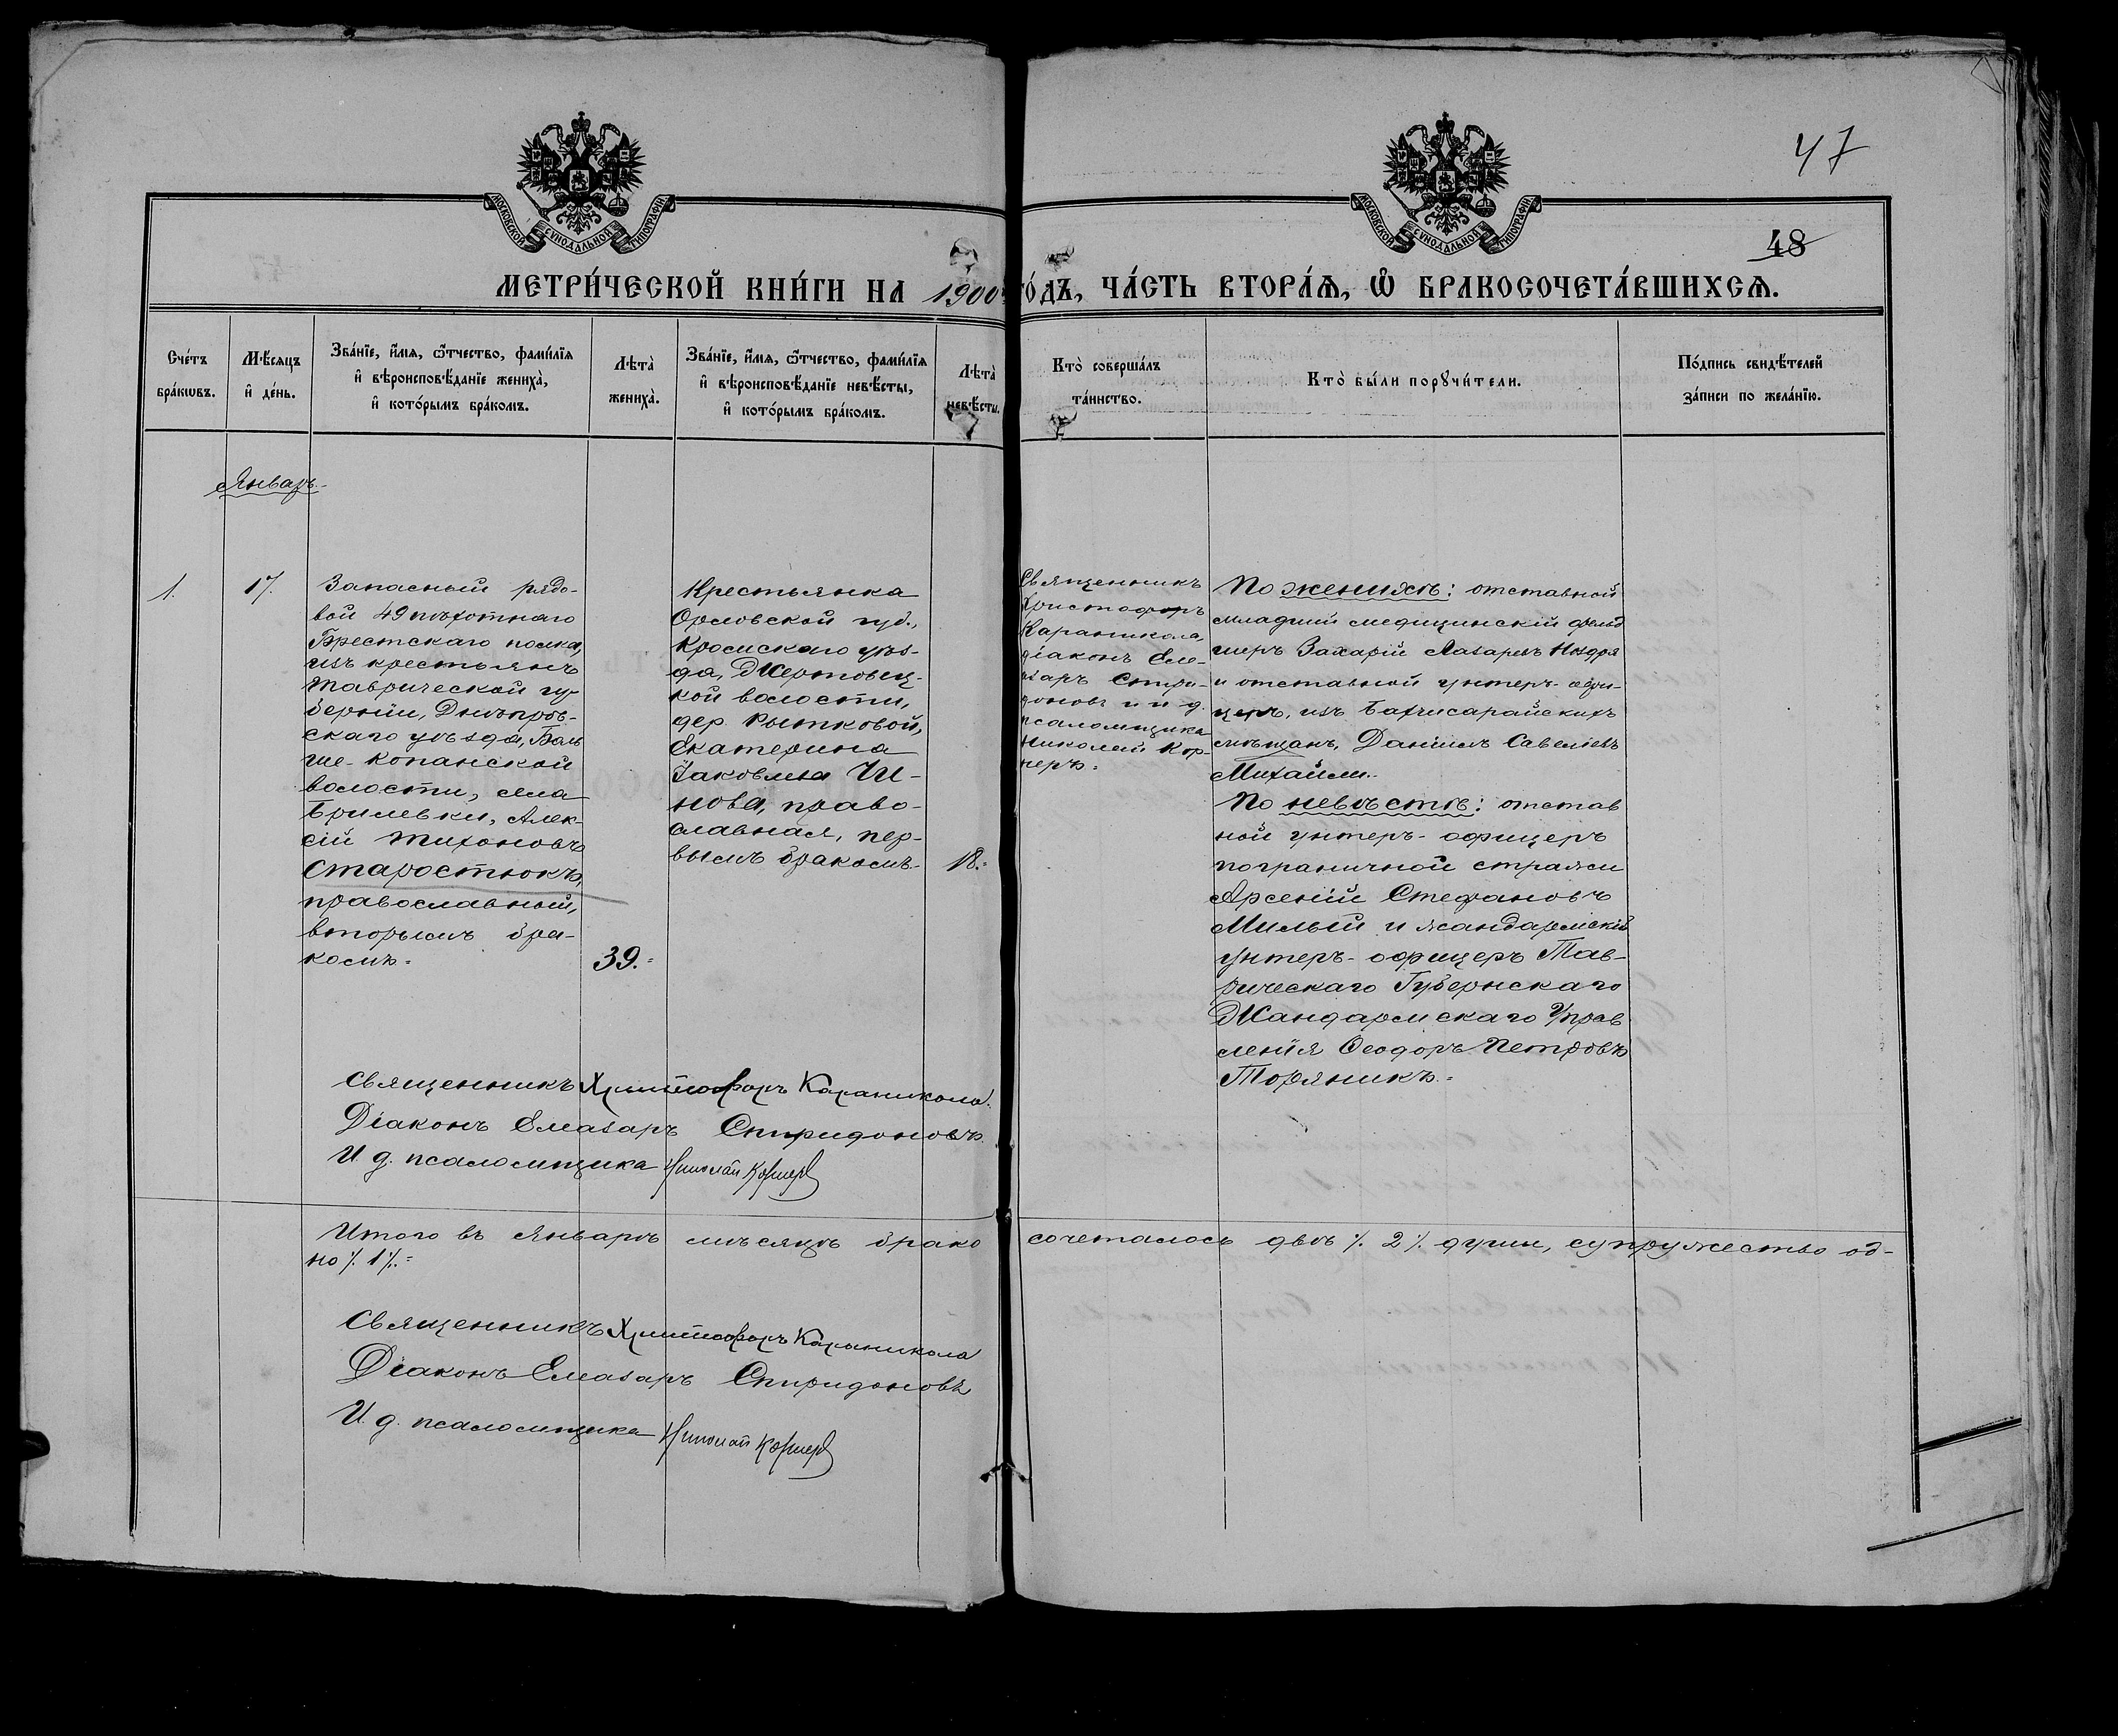 47
48
МОСКОВСКОЙ СѴНОДАЛЬНОЙ ТИПОГРАФІИ
МОСКОВСКОЙ СѴНОДАЛЬНОЙ ТИПОГРАФІИ
МЕТРИ́ЧЕСКОЙ КНИ́ГИ НА 1900 ГО́ДЪ, ЧА́СТЬ ВТОРА́Ѧ, Ѽ БРАКОСОЧЕТА́ВШИХСѦ.
Сче́тъ
бра́кѡвъ.
Мѣ́сяцъ
и҆ де́нь.
Зва́нїе, и҆́мя, ѻ҆́тчество, фами́лїя
и҆ вѣроисповѣ́данїе жениха̀,
и҆ кото́рымъ бра́комъ.
Лѣта̀
жениха̀.
Зва́нїе, и҆́мя, ѻ҆́тчество, фами́лїя
и҆ вѣроисповѣ́данїе невѣ́сты,
и҆ кото́рымъ бра́комъ.
Лѣта̀
невѣ́сты.
Кто̀ соверша́лъ
та́инство.
Кто̀ бы́ли порꙋчи́тели.
По́дпись свидѣ́телей
за́писи по жела́нїю.
Январь.
1.
17.
Запасный рядо-
вой 49 пѣхотнаго
Брестскаго полка,
изъ крестьянъ
Таврической гу-
берніи, Днѣпров-
скаго уѣзда, Боль
ше-Копанской
волости, села
Брилевки, Алек-
сій Тихоновъ
Старостюкъ,
православный,
вторымъ бра-
комъ.
39.
Крестьянка
Орловской губ.,
Кромскаго уѣз-
да, Жерновец-
кой волости,
дер. Рытковой,
Екатерина
Іаковлева Чи-
нова, право-
славная, пер-
вымъ бракомъ.
18.
Священникъ
Христофоръ
Караникола,
діаконъ Еле-
азаръ Спири-
доновъ и и. д.
псаломщика
Николай Кор-
неръ.
По женихѣ: отставной
младшій медицинскій фельд
шеръ Захарій Лазаревъ Ноздря
и отставной унтеръ-офи-
церъ, изъ Бахчисарайскихъ
мѣщанъ, Даніилъ Савеліевъ
Михайли.
По невѣстѣ: отстав
ной унтеръ-офицеръ
пограничной стражи
Арсеній Стефановъ
Милый и жандармскій
унтеръ-офицеръ Тав-
рическаго Губернскаго
Жандармскаго Управ
ленія Ѳеодоръ Петровъ
Торяникъ.
Священникъ Христофоръ Караникола.
Діаконъ Елеазаръ Спиридоновъ.
И. д. псаломщика Николай Корнеръ
Итого въ Январѣ мѣсяцѣ брако сочеталось двѣ ⁒ 2 ⁒ души, супружество од-
но ⁒ 1 ⁒.
Священникъ Христофоръ Караникола
Діаконъ Елеазаръ Спиридоновъ
И. д. псаломщика Николай Корнеръ